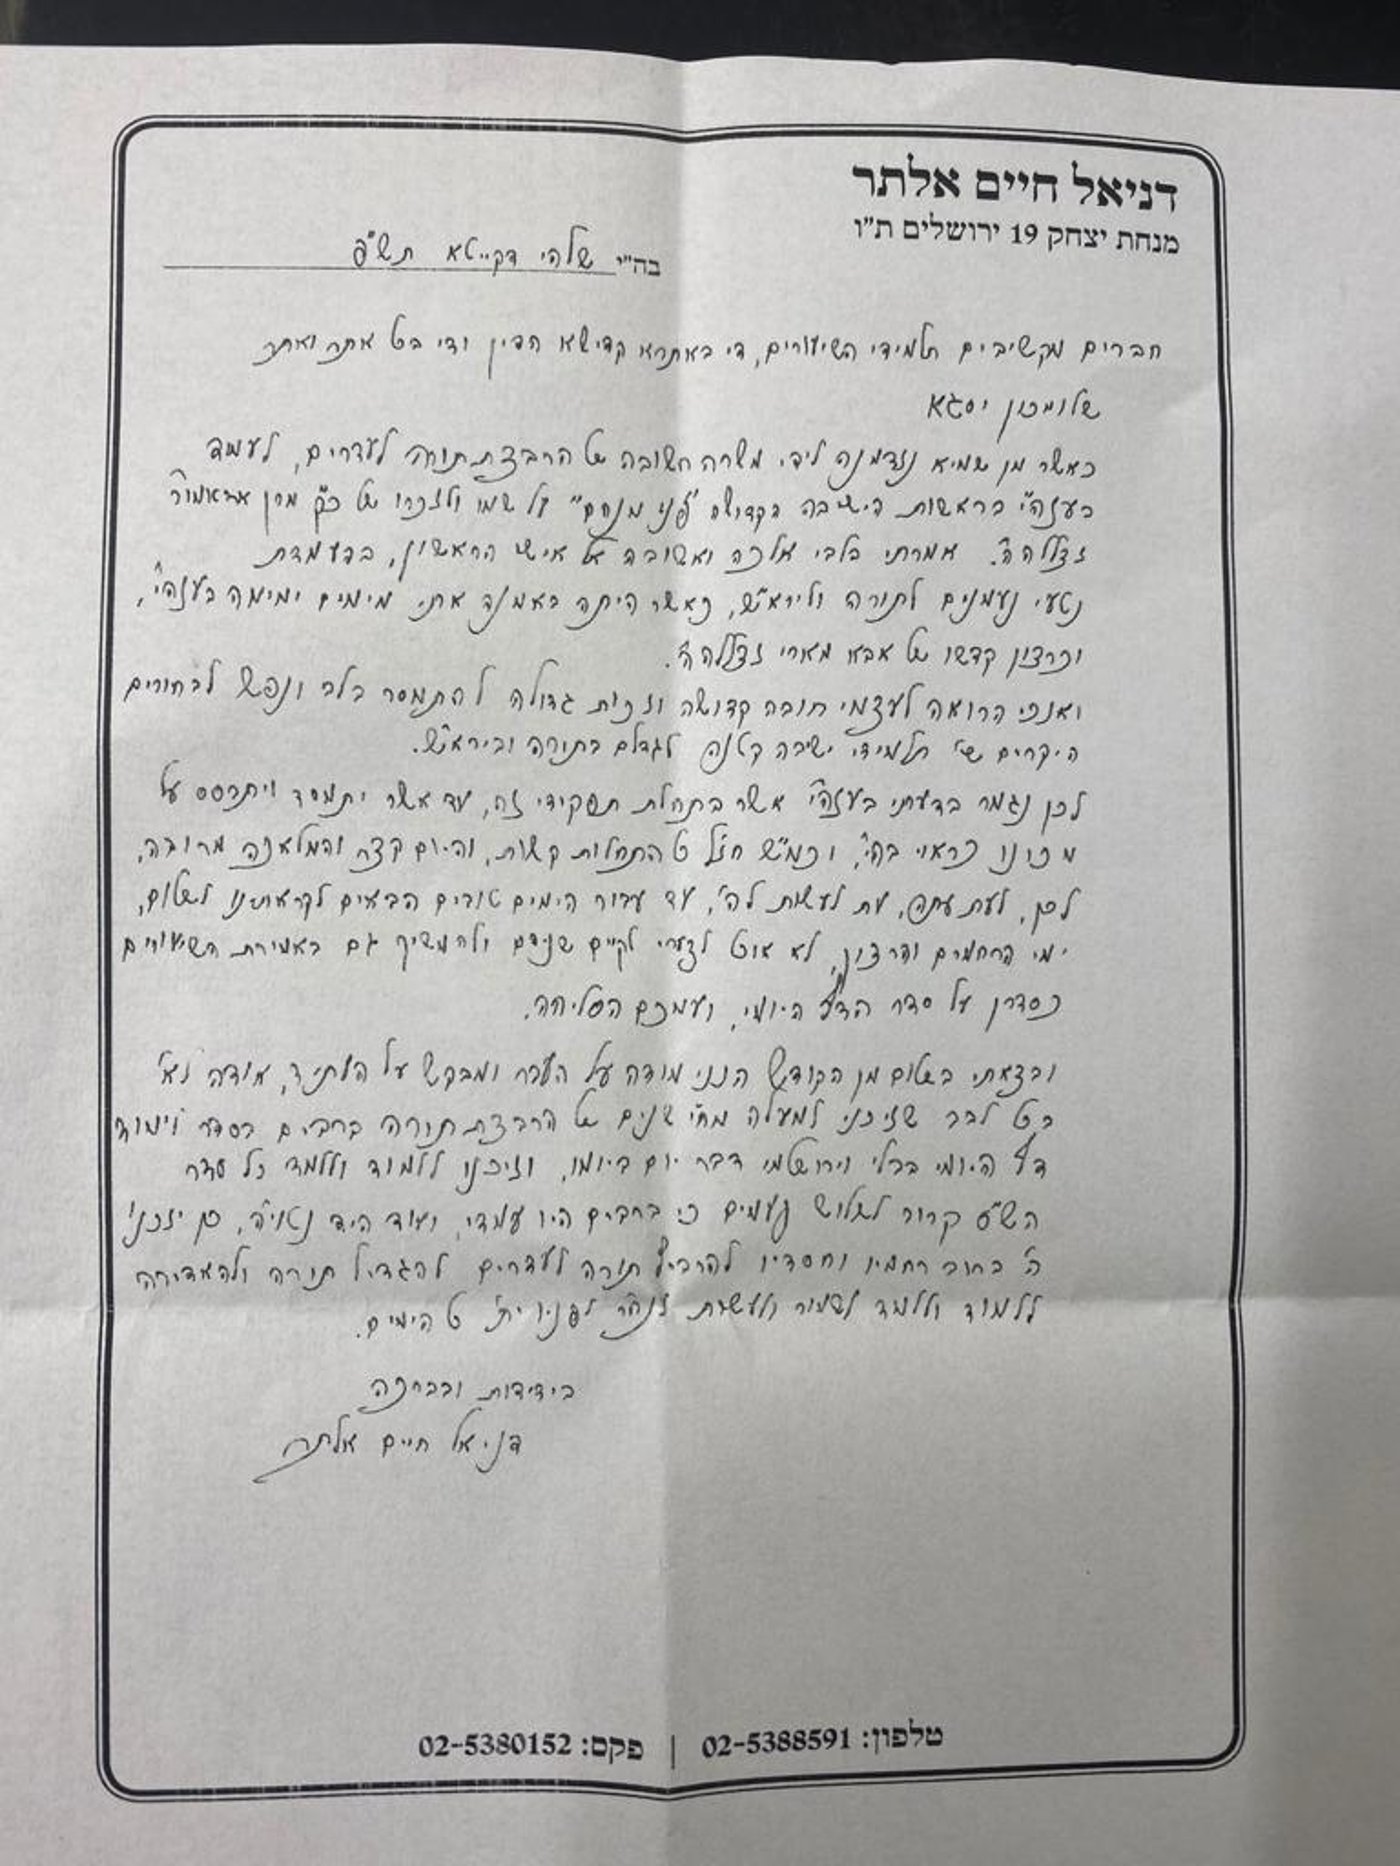 דניאל חיים אלתר
מנחת יצחק 19 ירושלים ת"ו
בה"י שלהי דקייטא תש"פ
חברים מקשיבים תלמידי השיעורים, די באתרא קדישא הדין ודי בכל אתר ואתר
שלומכון יסגא
כאשר מן שמיא נזדמנה לידי משרה חשובה של הרבצת תורה לעדרים, לעמוד
בעזה"י בראשות הישיבה הקדושה "פני מנחם" על שמו ולזכרו של כ"ק מרן אדאמו"ר
זצללה"ה. אמרתי בלבי אלכה ואשובה אל אישי הראשון, בהעמדת
נטעי נעמנים לתורה וליראי"ש, כאשר היתה באמנה אתי מימים ימימה בעזהי"י,
וכרצון קדשו של אבא מארי זצללה"ה.
ואנכי הרואה לעצמי חובה קדושה וזכות גדולה להתמסר בלב ונפש לבחורים
היקרים שי' תלמידי ישיבה קטנה לגדלם בתורה וביראי"ש.
לכן נגמר בדעתי בעזה"י אשר בתחלת תפקידי זה, עד אשר יתמסד ויתבסס על
מכונו כראוי בה"י, וכמ"ש חז"ל כל התחלות קשות, והיום קצר והמלאכה מרובה,
לכן, לעת עתה, עת לעשות לה', עד עבור הימים טובים הבאים לקראתינו לשלום,
ימי הרחמים והרצון, לא אוכל לצערי לקיים שניהם ולהמשיך גם באמירת השיעורים
כסדרן על סדר הד"ף היומי, ועמכם הסליחה.
ובצאתי בשלום מן הקודש הנני מודה על העבר ומבקש על העתיד, אודה לא'
בכל לבב שזיכני למעלה מח"י שנים של הרבצת תורה ברבים בסדר לימוד
דף היומי בבלי וירושלמי דבר יום ביומו, וזיכנו ללמוד וללמד כל סדר
הש"ס קרוב לשלוש פעמים כי ברבים היו עמדי, ועוד היד נטוי'ה, כן יזכני
ה' ברוב רחמיו וחסדיו להרביץ תורה לעדרים להגדיל תורה ולהאדירה
ללמוד וללמד לשמור ולעשות ונח"ר לפניו ית' כל הימים.
בידידות ובברכה
דניאל חיים אלתר
טלפון: 02-5388591 | פקס: 02-5380152